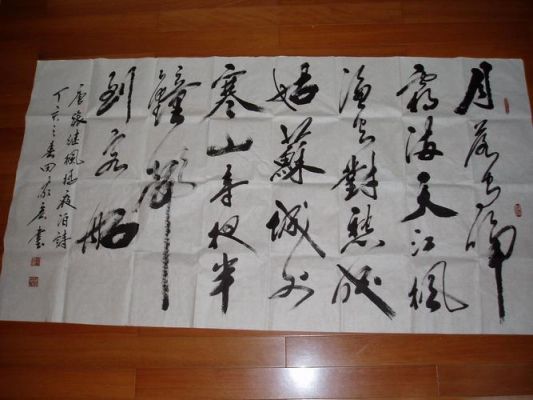 月落烏啼
霜滿天江楓
漁火對愁眠
姑蘇城外
寒山寺夜半
鐘聲
到客船
唐張继楓橋夜泊詩
丁亥之春田書